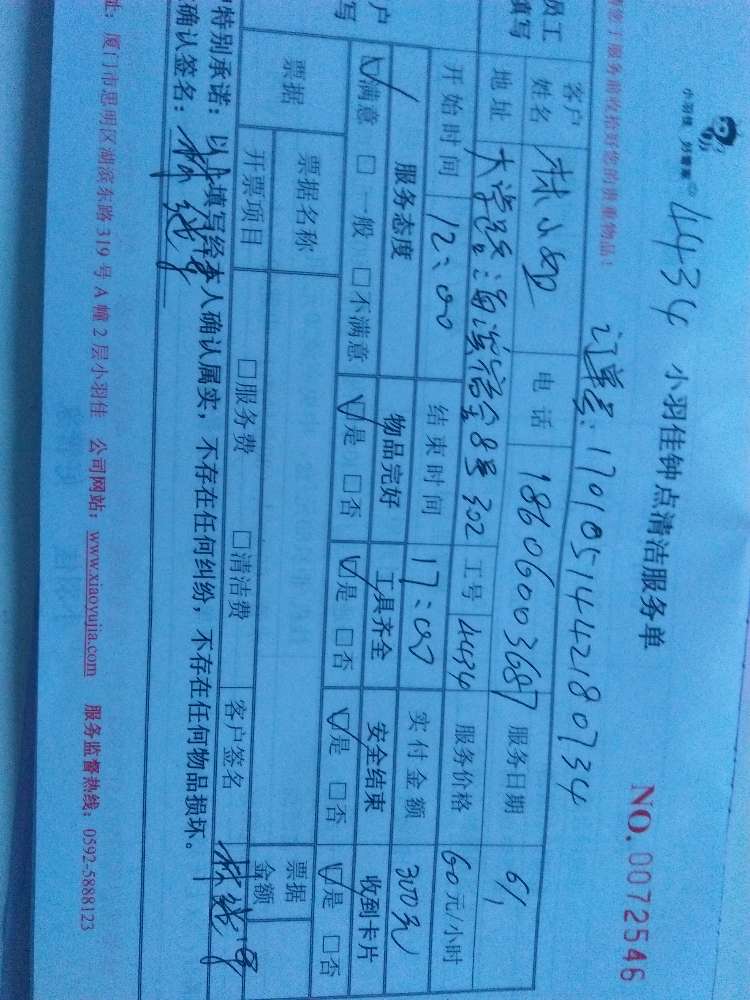 小羽佳 别管家
4434 小羽佳钟点清洁服务单 NO.0072546
订单号:1701051442180734
您了服务前收拾好您的贵重物品!
员工填写
客户姓名 林小姐 电话 18606003687 服务日期 6/1
地址 大学路 海滨宿舍8号302 工号 4434 服务价格 60元/小时
开始时间 12:00 结束时间 17:00 实付金额 300元
户写
服务态度 物品完好 工具齐全 安全结束 收到卡片
☑满意 □一般 □不满意 ☑是 □否 ☑是 □否 ☑是 □否 ☑是 □否
票据 票据名称 票据金额
开票项目 □服务费 □清洁费 客户签名
特别承诺:以上填写经本人确认属实,不存在任何纠纷,不存在任何物品损坏。
确认签名:
址:厦门市思明区湖滨东路319号A幢2层小羽佳 公司网站:www.xiaoyujia.com 服务监督热线:0592-5888123